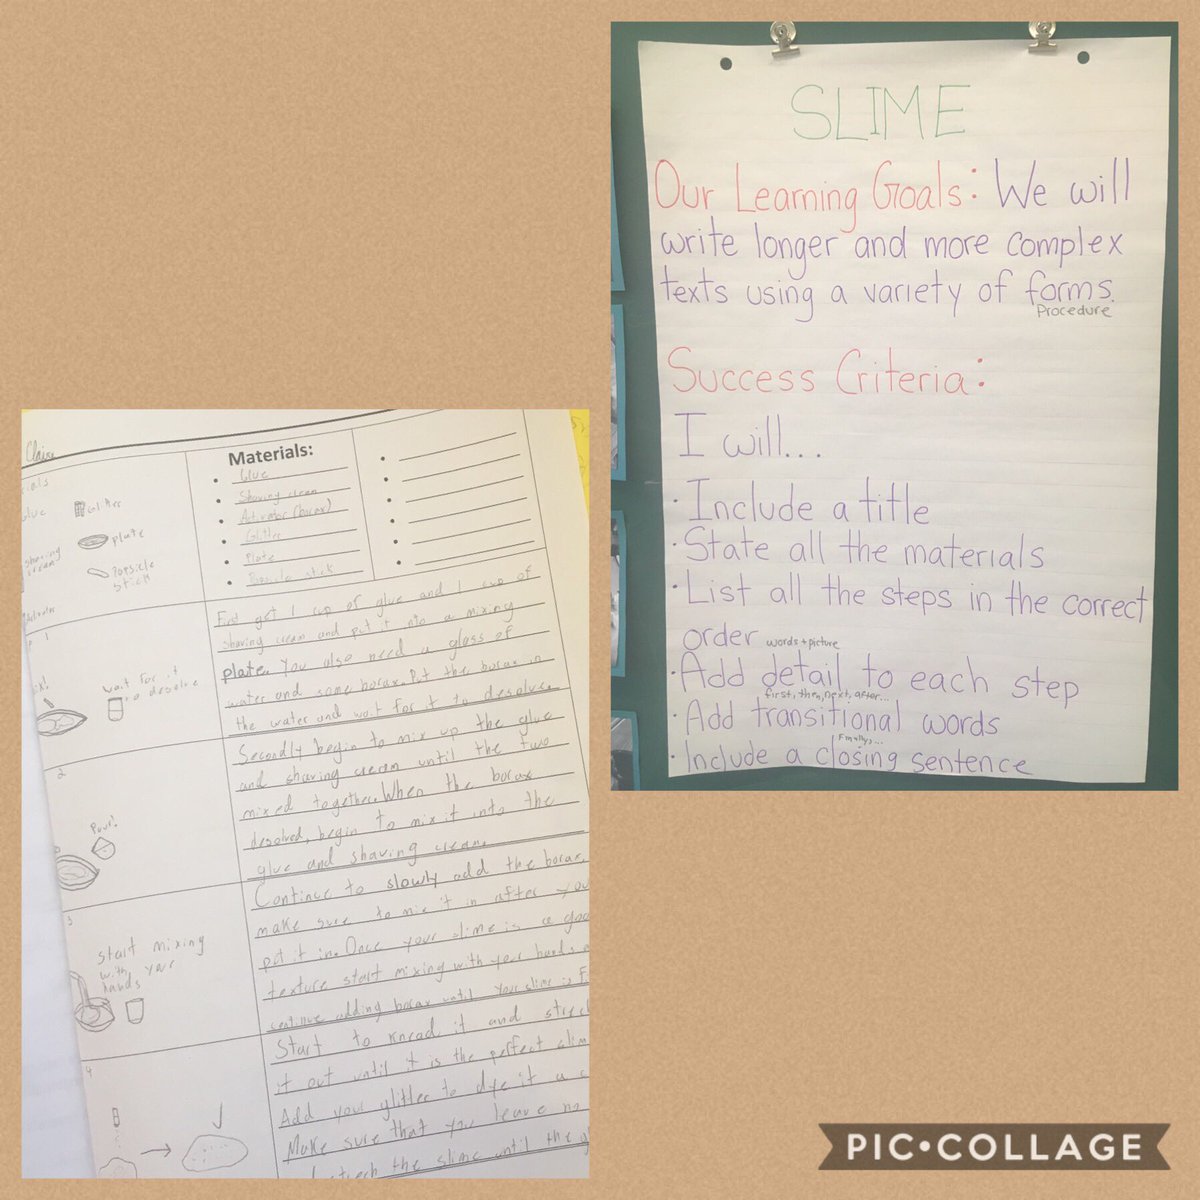 SLIME
Our Learning Goals: We will
write longer and more complex
texts using a variety of forms.
Procedure
Success Criteria:
I will...
· Include a title
· State all the materials
· List all the steps in the correct
order words + picture
· Add detail to each step
first, then, next, after...
· Add transitional words
Finally...
· Include a closing sentence
Claire
Glitter
plate
shaving
cream
Popsicle
stick
Materials:
• Glue
• Shaving cream
• Activator (borax)
• Glitter
• Plate
• stick
1
wait for it
to desolve
First get 1 cup of glue and 1 cup of
shaving cream and put it into a mixing
plate. You also need a glass of
water and some borax. Put the borax in
the water and wait for it to desolve.
2
Pour!
Secondly begin to mix up the glue
and shaving cream until the two
mixed together. When the borax
desolved, begin to mix it into the
glue and shaving cream.
3
start mixing
with your
hands
Continue to slowly add the borax.
make sure to mix it in after you
put it in. Once your slime is a
texture start mixing with your hands
continue adding borax until your slime is
4
Start to knead it and
it out until it is the perfect
Add your glitter to dye it a
Make sure that you leave no
the slime until the
PIC•COLLAGE